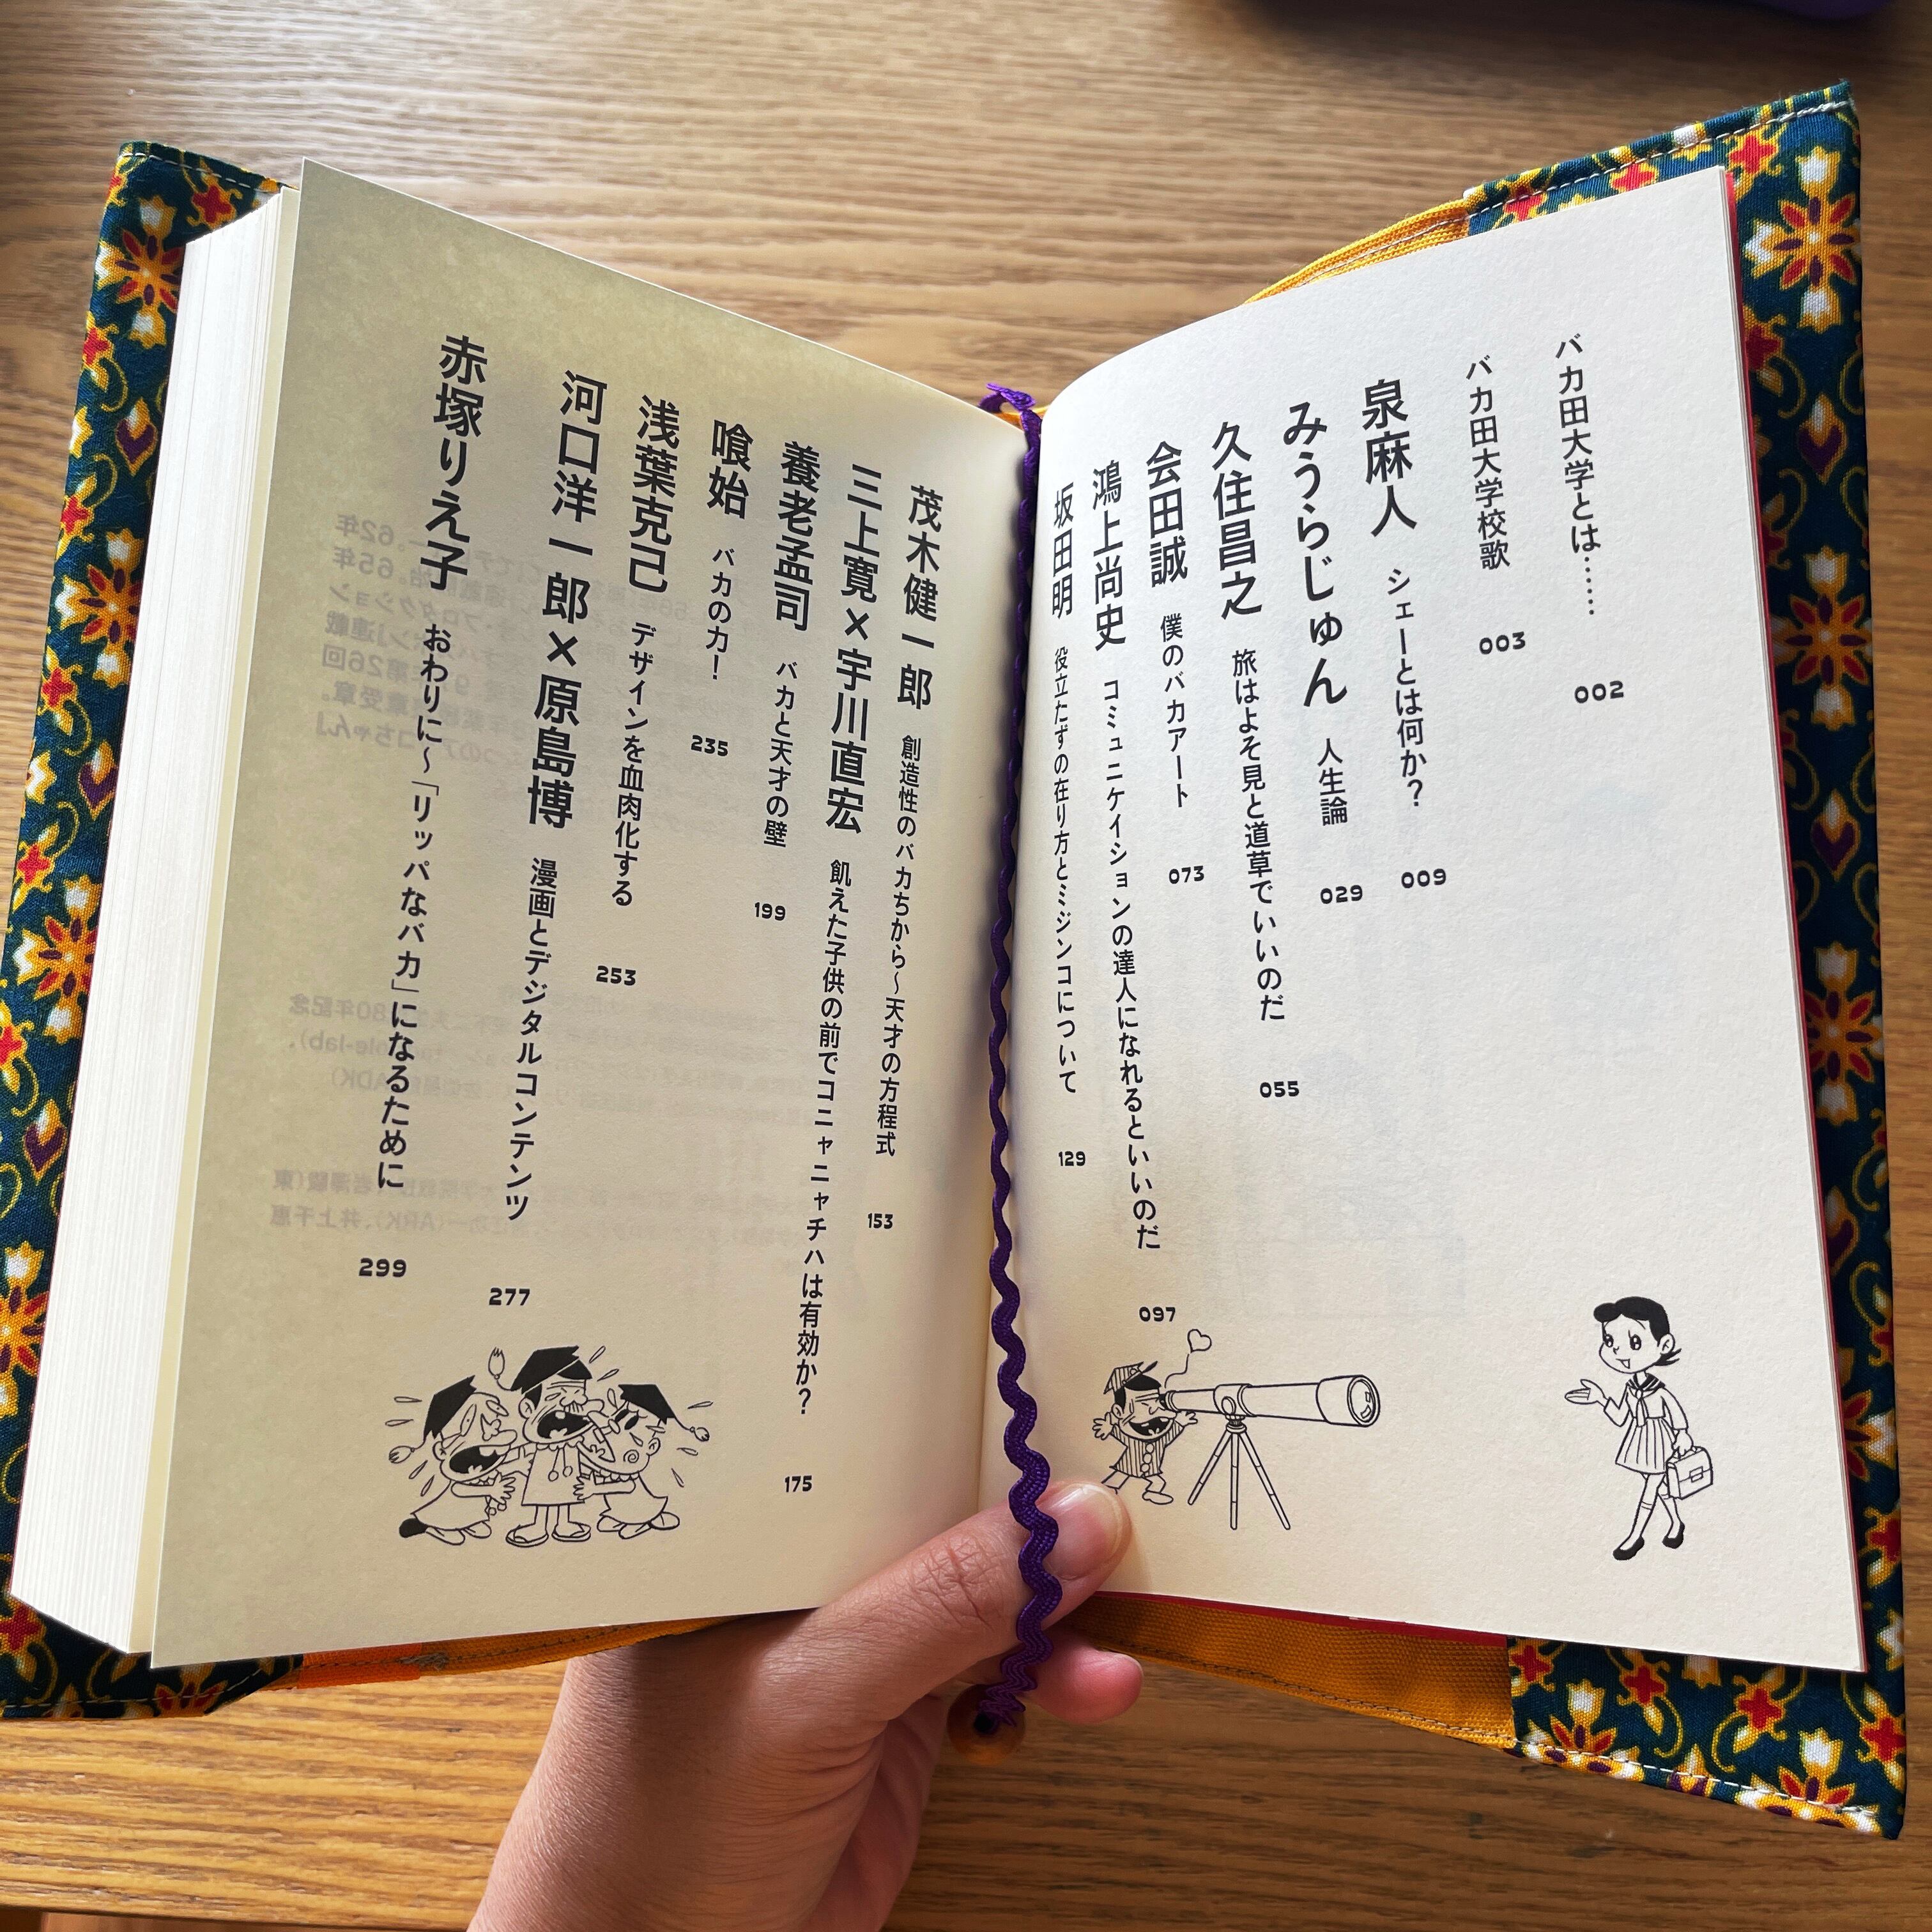 バカ田大学とは…… 002
バカ田大学校歌 003
泉麻人 シェーとは何か? 009
みうらじゅん 人生論 029
久住昌之 旅はよそ見と道草でいいのだ 055
会田誠 僕のバカアート 073
鴻上尚史 コミュニケイションの達人になれるといいのだ 097
坂田明 役立たずの在り方とミジンコについて 129
茂木健一郎 創造性のバカぢから~天才の方程式 153
三上寛×宇川直宏 飢えた子供の前でコニャニャチハは有効か? 175
養老孟司 バカと天才の壁 199
喰始 バカの力! 235
浅葉克己 デザインを血肉化する 253
河口洋一郎×原島博 漫画とデジタルコンテンツ 277
赤塚りえ子 おわりに~「リッパなバカ」になるために 299